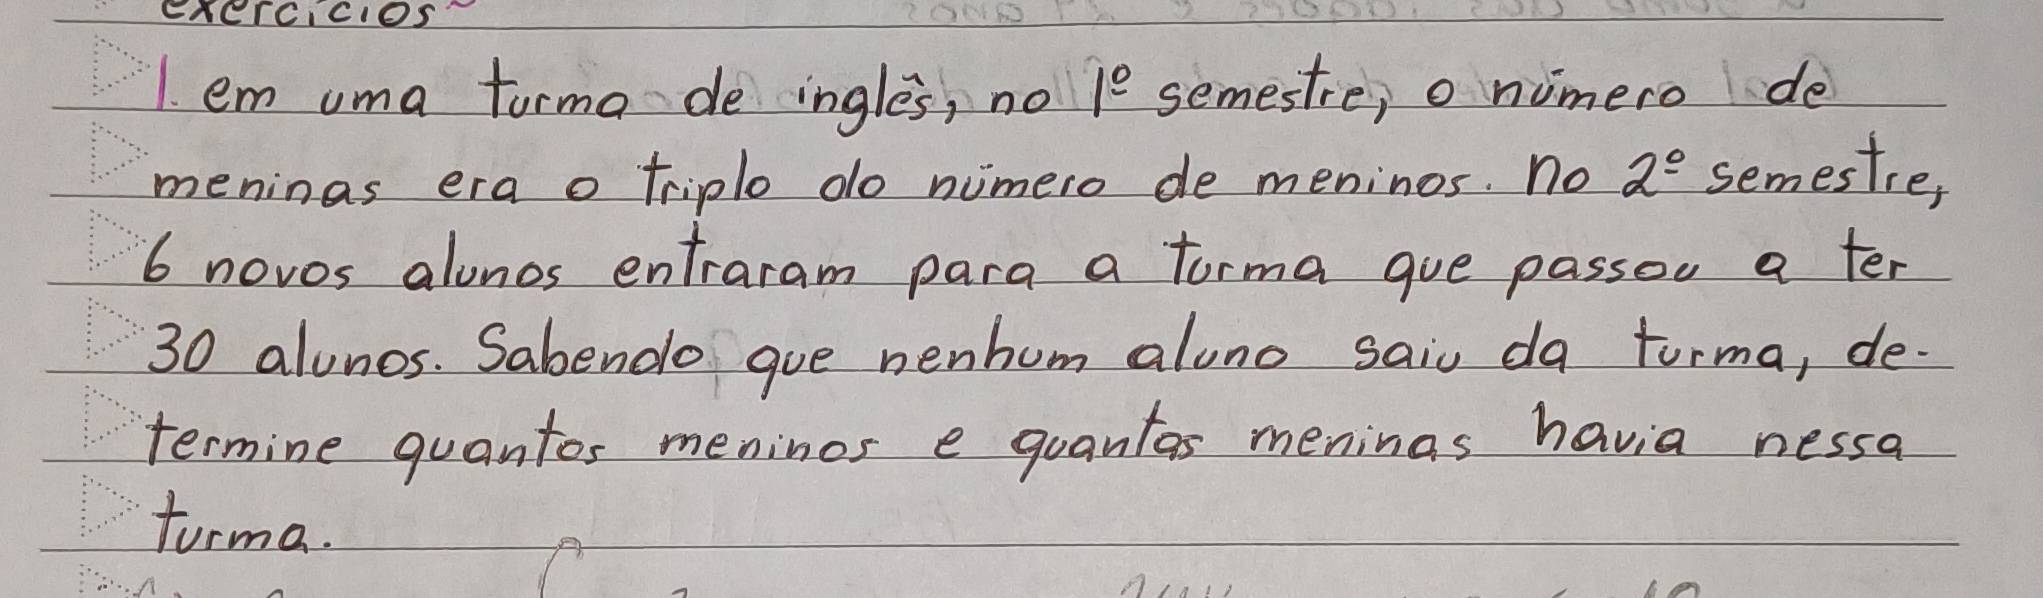 exercícios~
1. em uma turma de inglês, no 1º semestre, o número de
meninas era o triplo do número de meninos. no 2º semestre,
6 novos alunos entraram para a turma que passou a ter
30 alunos. Sabendo que nenhum aluno saiu da turma, de-
termine quantos meninos e quantas meninas havia nessa
turma.